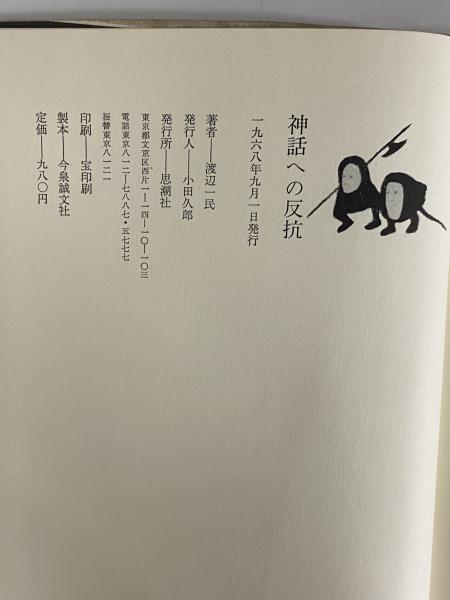 神話への反抗
一九六八年九月一日発行
著者――渡辺一民
発行人――小田久郎
発行所――思潮社
東京都文京区西片一―一四―一〇―一〇三
電話東京八一二―七八八七・五七七七
振替東京八一二一
印刷――宝印刷
製本――今泉誠文社
定価――九八〇円